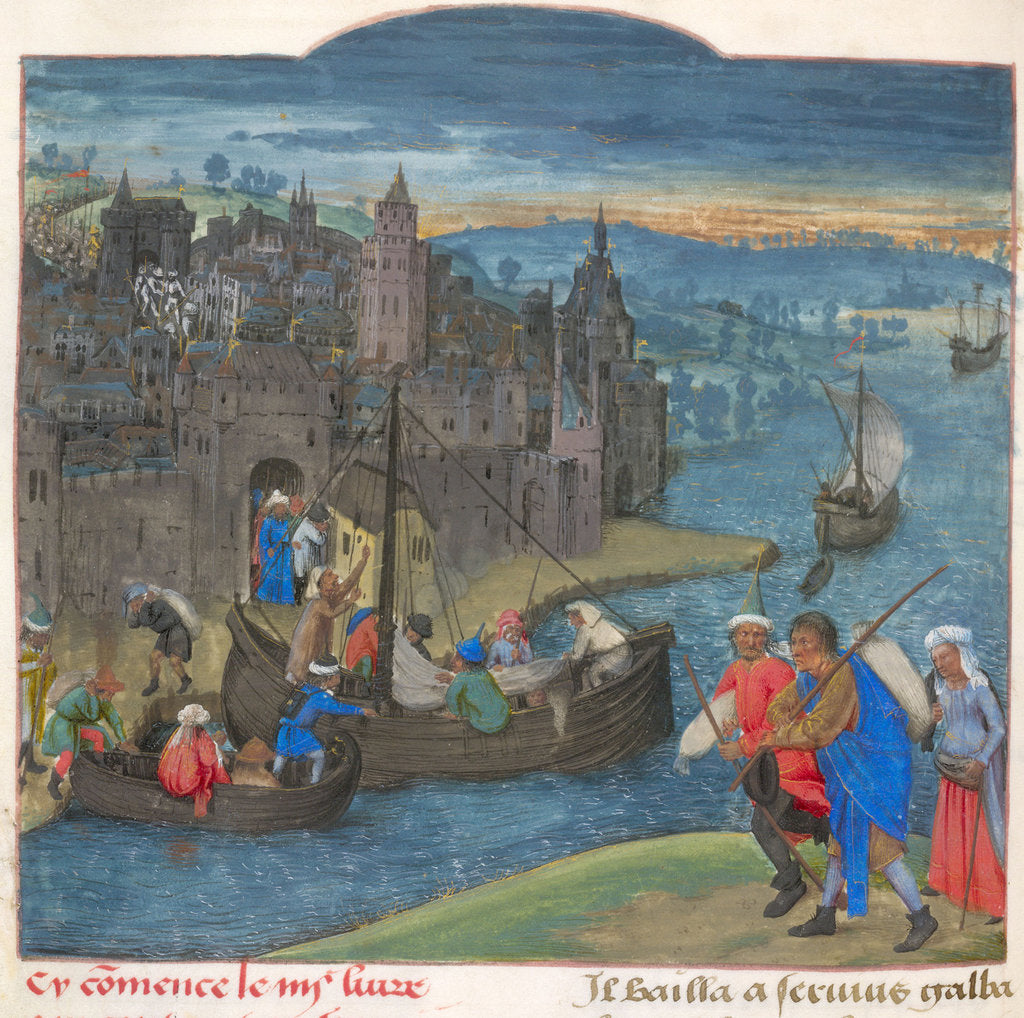 Cy cōmence le iiis liure
Il bailla a seruius galba